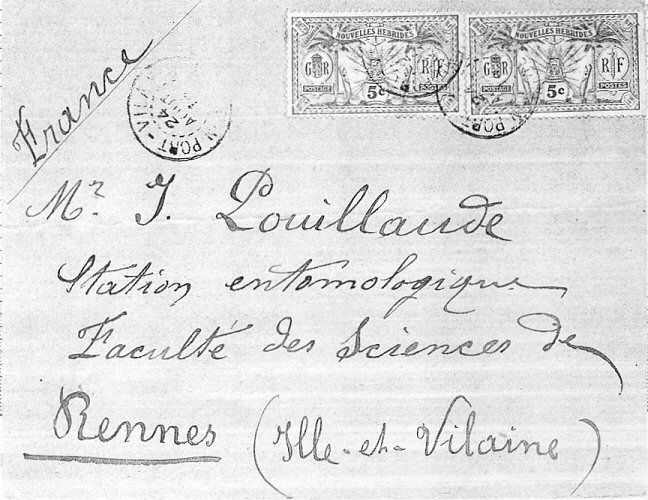 France
NOUVELLES HEBRIDES
GR RF
POSTAGE POSTES
5c
NOUVELLES HEBRIDES
GR RF
POSTAGE POSTES
5c
PORT-VILA
24
PORT
Mr. I. Pouillaude
Station entomologique
Faculté des Sciences de
Rennes (Ille-et-Vilaine)